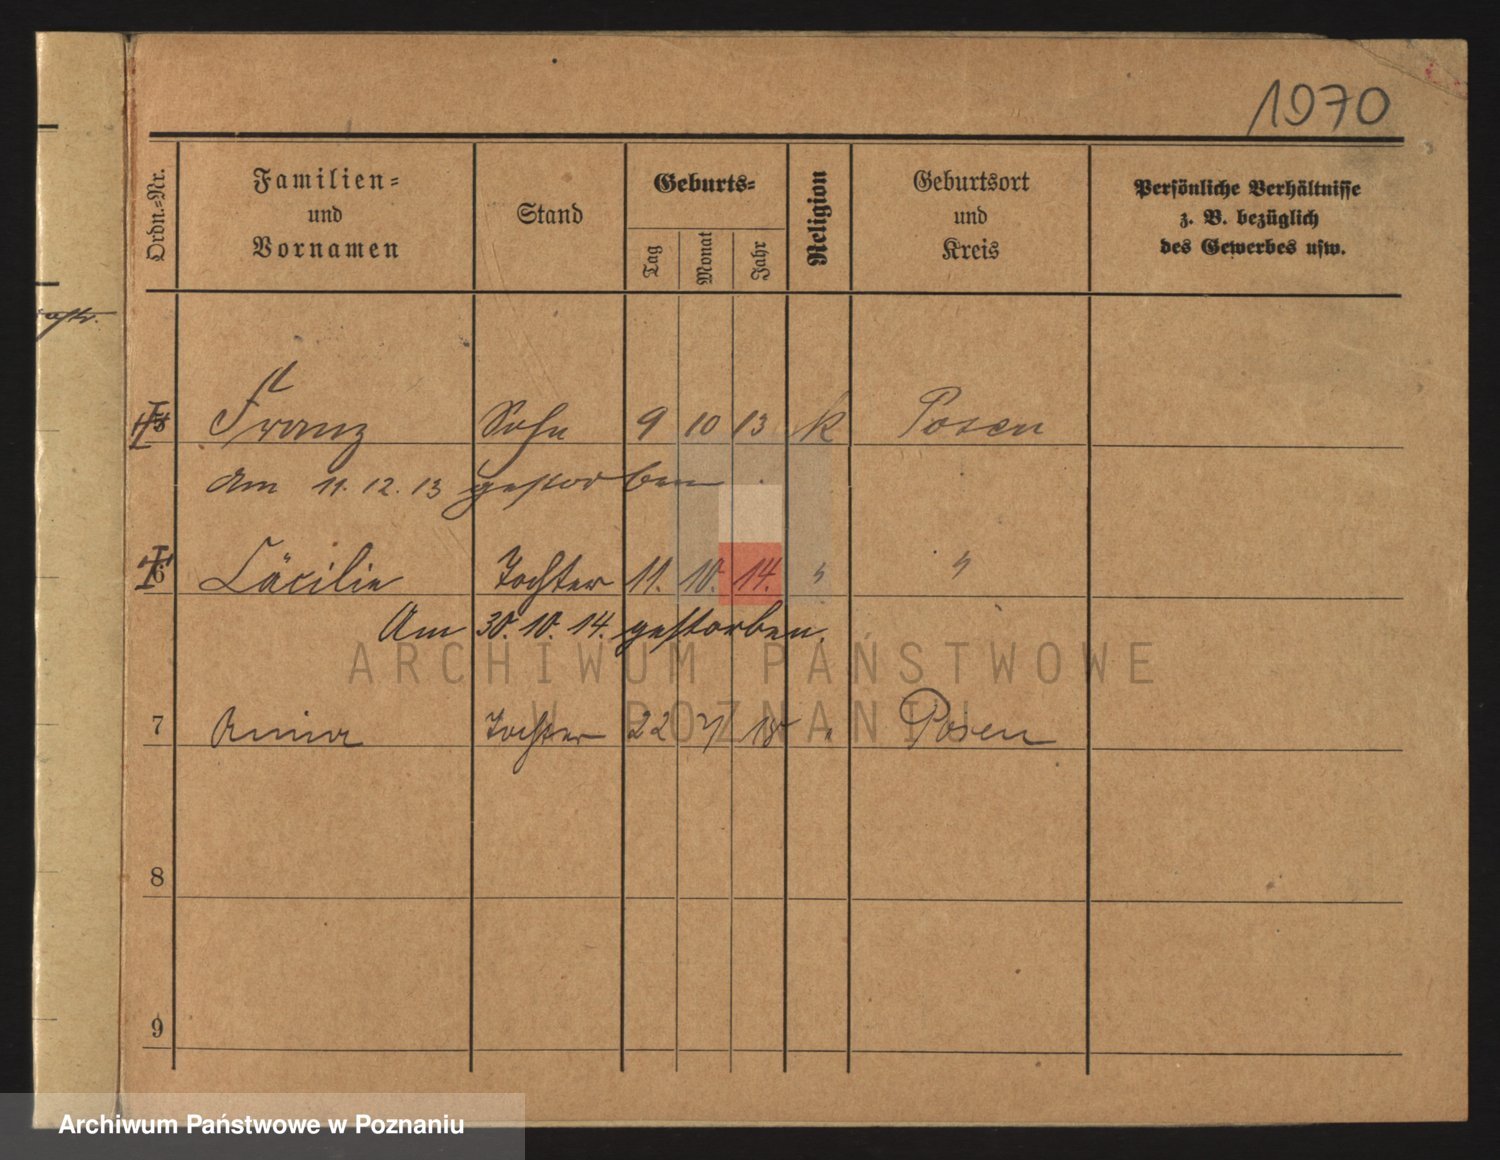 1970
Ordn.-Nr.
Familien-
und
Vornamen
Stand
Geburts-
Tag
Monat
Jahr
Religion
Geburtsort
und
Kreis
Persönliche Verhältnisse
z. B. bezüglich
des Gewerbes usw.
5 Franz Sohn 9 10 13 k Posen
Am 11. 12. 13 gestorben
6 Cäcilie Tochter 11. 10. 14. " "
Am 30. 10. 14. gestorben.
ARCHIWUM PAŃSTWOWE
W POZNANIU
7 Tochter 22 18 " Posen
8
9
Archiwum Państwowe w Poznaniu